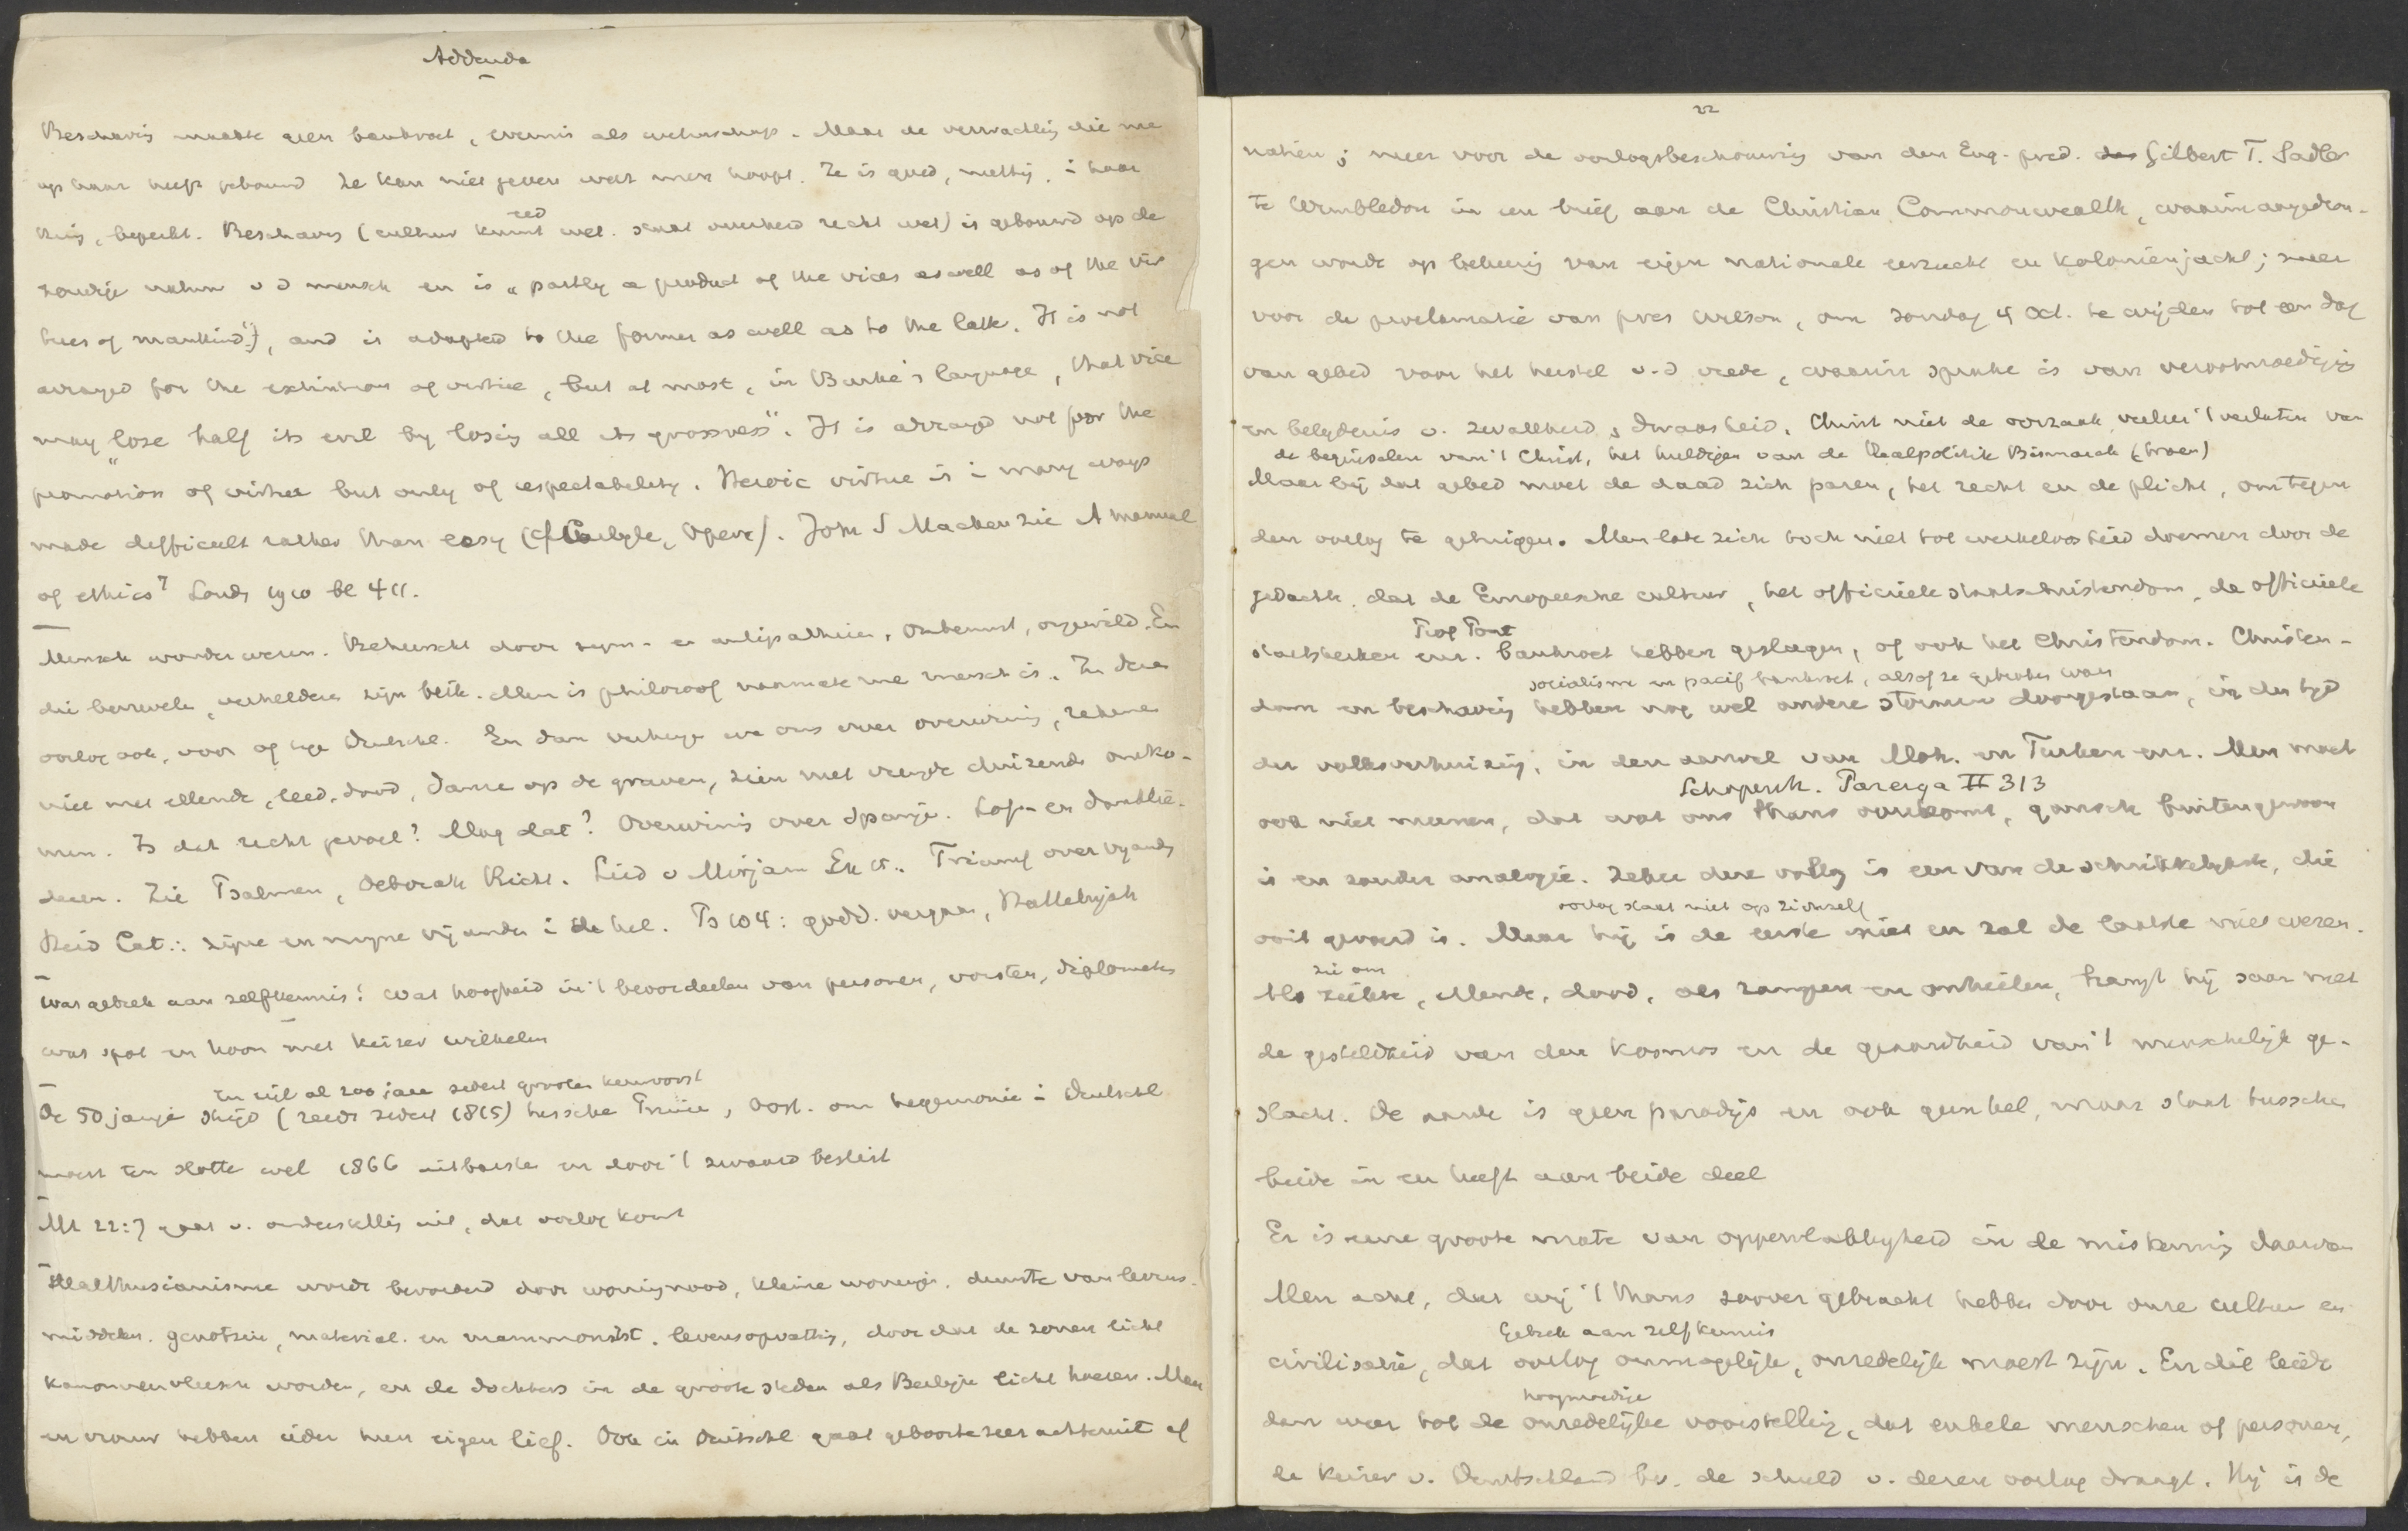 Addenda
Beschaving maakte geen bankroet, evenmin als wetenschap. Maar de verwachting die me
op haar heeft gebouwd Ze kan niet geven wat men hoopt. Ze is goed, nuttig, i haar
kring, beperkt. Beschaving (cultuur kunst zed wet. staat overheid recht wet) is gebouwd op de
zondige natuur v d mensch en is „partly a product of the vices as well as of the vir
tues of mankind", and is adapted to the former as well as to the latter. It is not
arranged for the extinction of virtue, but at most, in Burke's language, that vice
may "lose half its evil by losing all its grossness". It is arranged not for the
promotion of virtue but only of respectability. Heroic virtue is i many ways
made difficult rather than easy (cf Carlyle, Spenc). John S Mackenzie A manual
of ethics⁴ Lond 1910 bl 411.
Mensch wonder wezen. Beheerscht door sym- en antipathieën, onbewust, ongewild. En
die benevelen, verhelderen zijn blik. Men is philosoof naarmate men mensch is. In dezen
oorlog ook, voor of tege Duitschl. En dan verheuge we ons over overwining, rekenen
niet met ellende, leed, dood, danse op de graven, zien met vreugde duizende omko-
men. Is dat recht gevoel? Mag dat? Overwinnig over Spanje. Lof- en dankliede-
deren. Zie Psalmen, Deborah Richt. Lied v Mirjam Ex 15. Triumf over vijands
Heid Cat.: zijne en mijne vijanden i de hel. Ps 104: godd. vergaan, Hallelujah
Wat gebrek aan zelfkennis! Wat hoogheid in 't beoordeelen van personen, vorsten, diplomaten
wat spot en hoon met keizer Wilhelm
En eigl al 200 jaar sedert grooten keurvorst
De 50 jarige strijd (reeds sedert 1815) tussche Pruise, Oost. om hegemonie i Duitschl
moest ten slotte wel 1866 uitbarste en door 't zwaard beslist
Mt 22:7 gaat v. onderstellig uit, dat oorlog komt
Malthusianisme wordt bevorderd door woningnood, kleine woninge. duurte van levens-
middelen. genotzin, material. en mammonist. levensopvattig, door dat de zonen licht
kanonnenvleesch worden, en de dochters in de groote steden als Berlijn licht hoeren. Man
en vrouw hebben ieder hun eigen lief. Ook in Duitschl gaat geboorte zeer achteruit of
22
natiën; meer voor de oorlogsbeschouwing van den Eng. pred. Gilbert T. Sadler
te Wimbledon in een brief aan de Christian Commonwealth, waarin aangedron-
gen wordt op belijdenis van eigen nationale eerzucht en koloniënjacht; meer
voor de proclamatie van pres Wilson, om zondag 4 Oct. te wijden tot een dag
van gebed voor het herstel v. d vrede, waarin sprake is van verootmoediging
en belijdenis v. zwakheid, dwaasheid. Christ niet de oorzaak, veeleer 't verlaten van
de beginselen van 't Christ, het huldigen van de Realpolitik Bismarck (troen)
Maar bij dat gebed moet de daad zich paren, het recht en de plicht, om tegen
den oorlog te getuigen. Men late zich toch niet tot werkeloosheid doemen door de
gedachte, dat de Europeesche cultuur, het officiëele staatschristendom, de officiëele
Prof Pont
staatskerken enz. bankroet hebben geslagen, of ook het Christendom. Christen-
socialisme en pacif bankroet, alsof ze gebroken waren
dom en beschaving hebben nog wel andere stormen doorgestaan, in den tijd
der volksverhuizing, in den aanval van Moh. en Turken enz. Men moet
Schopenh. Parerga II 313
ook niet meenen, dat wat ons thans overkomt, gansch buitengewoon
is en zonder analogie. Zeker deze oorlog is een van de schrikkelijkste, die
oorlog staat niet op zichzelf
ooit gevoerd is. Maar hij is de eerste niet en zal de laatste niet wezen.
zie om
Als ziekte, ellende, dood, als rampen en onheilen, hangt hij saam met
de gesteldheid van den kosmos en de geaardheid van 't menschelijk ge-
slacht. De aarde is geen paradijs en ook geen hel, maar staat tusschen
beide in en heeft aan beide deel
Er is eene groote mate van oppervlakkigheid in de miskenning daarvan
Men acht, dat wij 't thans zoover gebracht hebben door onze cultuur en
Gebrek aan zelfkennis
civilisatie, dat oorlog onmogelijk, onredelijk moest zijn. En dit leidt
hoogmoedige
dan weer tot de onredelijke voorstelling, dat enkele menschen of personen,
de keizer v. Duitschland bv. de schuld v. dezen oorlog draagt. Hij is de